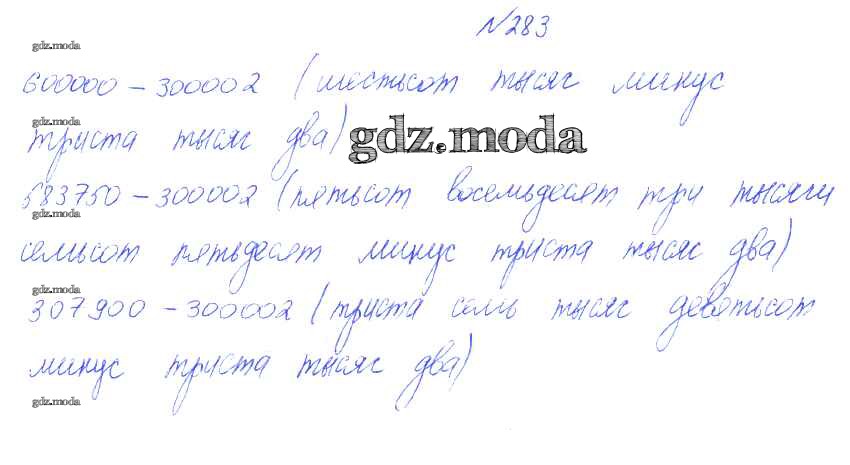 №283
gdz.moda
600000 – 300002 (шестьсот тысяч минус
gdz.moda
триста тысяч два) gdz.moda
583750 – 300002 (пятьсот восемьдесят три тысячи
gdz.moda
семьсот пятьдесят минус триста тысяч два)
gdz.moda
307900 – 300002 (триста семь тысяч девятьсот
минус триста тысяч два)
gdz.moda